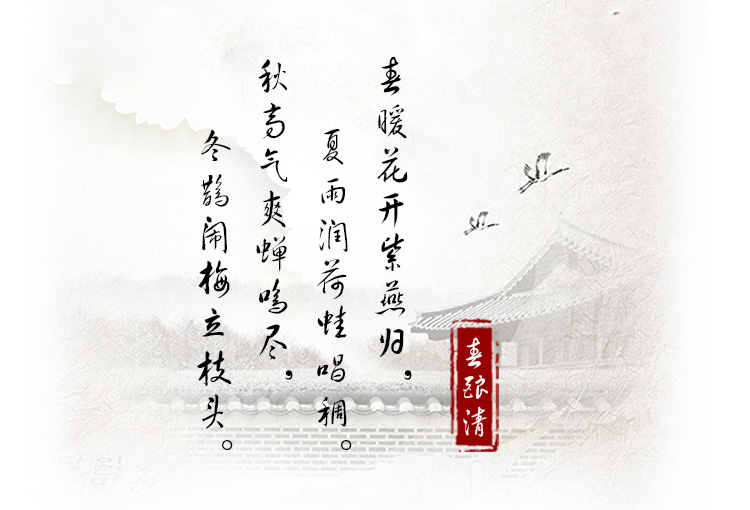 春酿清
春暖花开紫燕归，
夏雨润荷蛙唱稠。
秋高气爽蝉鸣尽，
冬鹊闹梅立枝头。